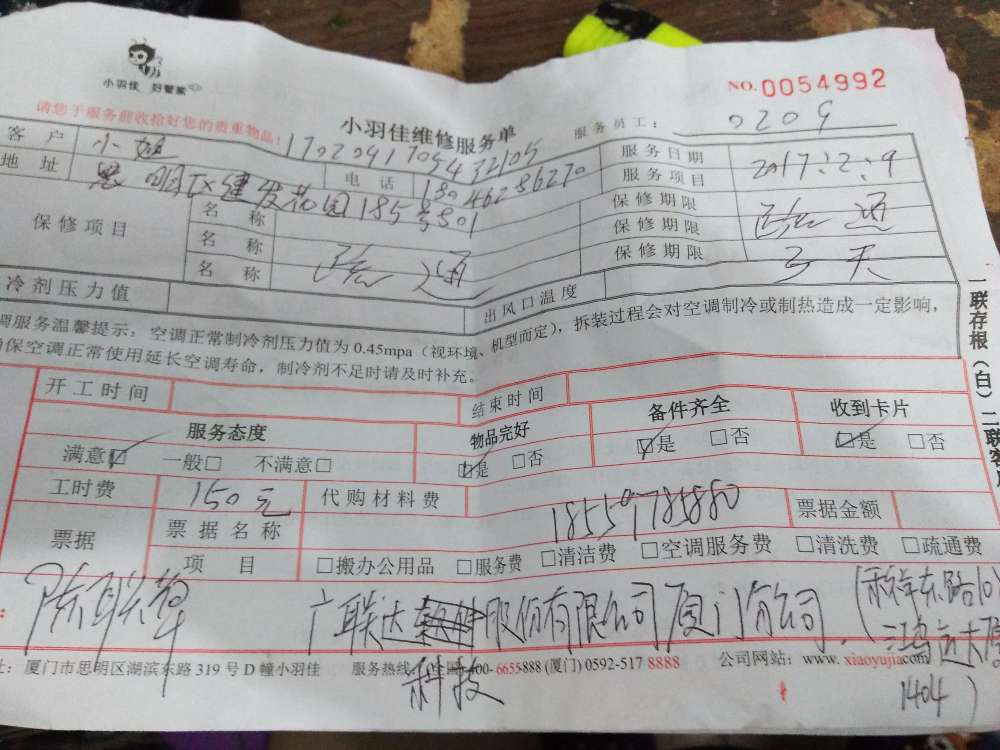 小羽佳 好管家
NO.0054992
请您于服务前收拾好您的贵重物品!
小羽佳维修服务单
服务员工: 0209
客户 小姐 17020917054432105
服务日期 2017.12.9
地址 思明区建发花园185号801
电话 18046286270
服务项目
保修项目
名称
保修期限
疏通
名称
保修期限
名称 疏通
保修期限 3天
冷剂压力值
出风口温度
调服务温馨提示:空调正常制冷剂压力值为0.45mpa(视环境、机型而定),拆装过程会对空调制冷或制热造成一定影响,
确保空调正常使用延长空调寿命,制冷剂不足时请及时补充。
一联存根(白)二联客户
开工时间
结束时间
服务态度
物品完好
备件齐全
收到卡片
满意☑ 一般□ 不满意□
☑是 □否
☑是 □否
☑是 □否
工时费 150元
代购材料费
18559785880
票据金额
票据
票据名称
项目
□搬办公用品 □服务费 □清洁费 □空调服务费 □清洗费 □疏通费
陈联辉
广联达股份有限公司厦门分公司
科技
(禾祥东路10
鸿运大厦
1404)
址:厦门市思明区湖滨东路319号D幢小羽佳
服务热线:(全国)400-6655888(厦门)0592-5178888
公司网站:www.xiaoyujia.com